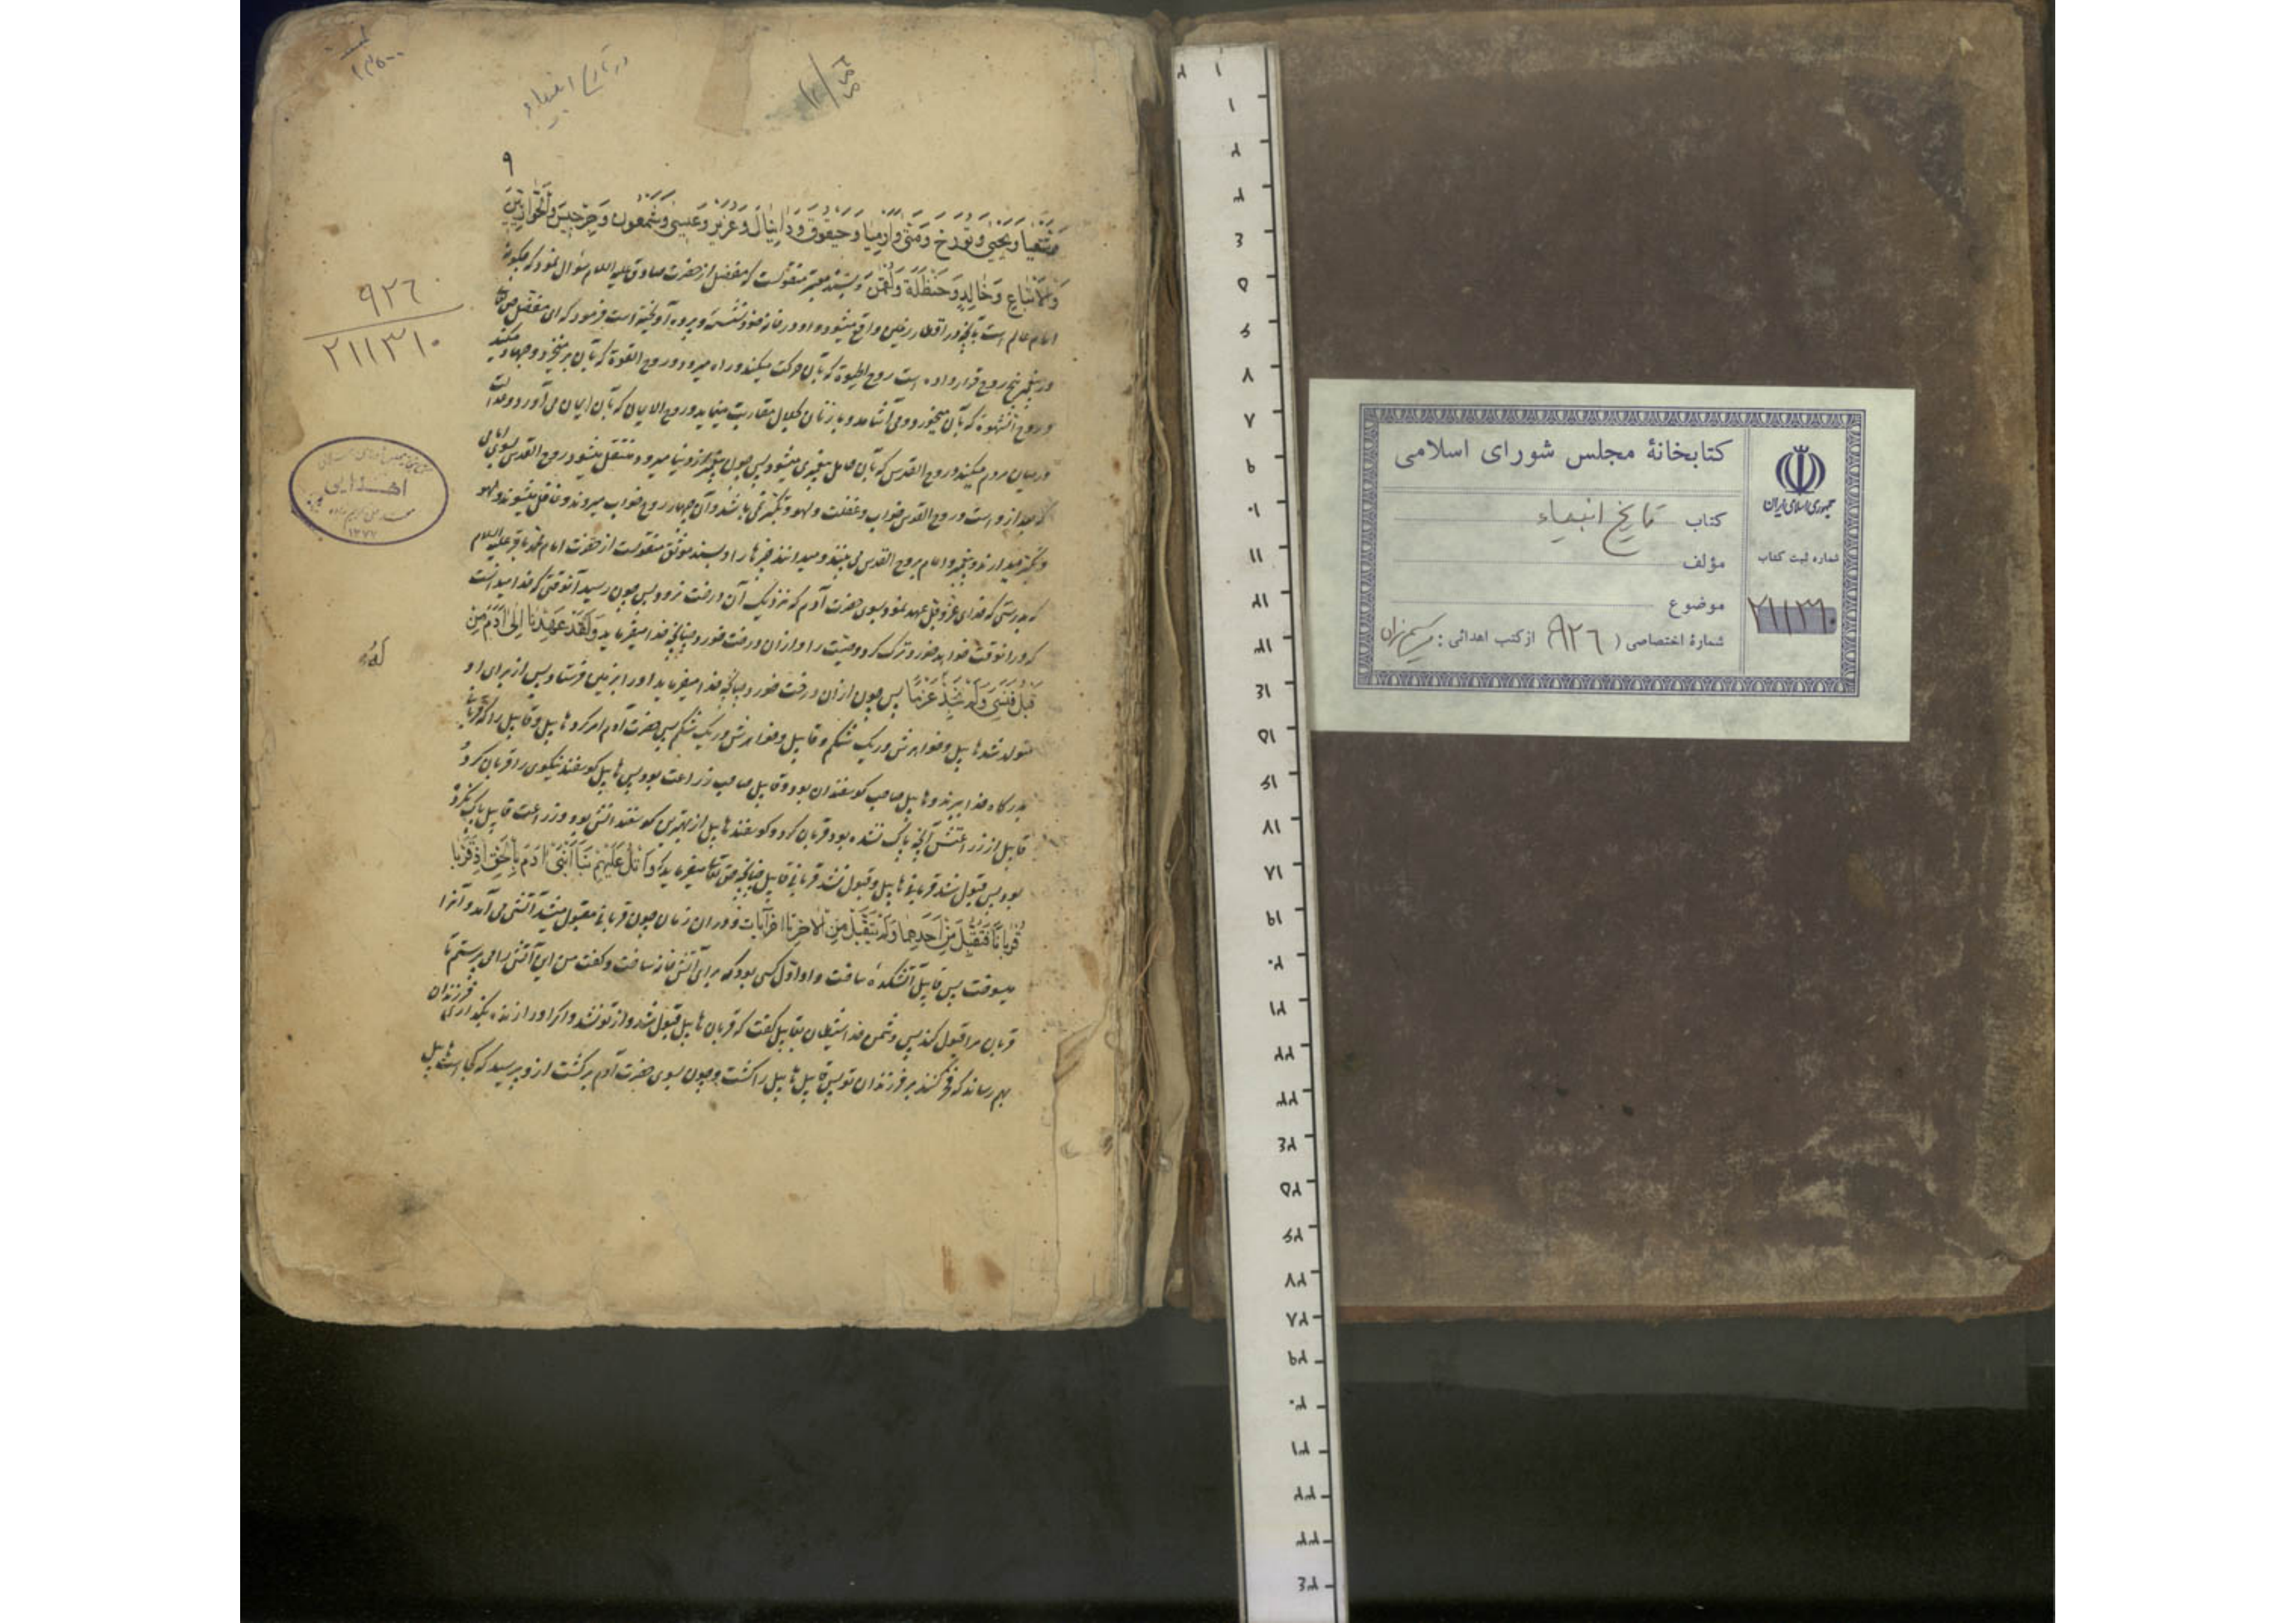 در تاریخ انبیاء
۹
وشعیا ویحیی وتورخ ومتی وارمیا وحیقوق ودانیال وعزیر وعیسی وشمعون وجرجیس والحواریین
والاتباع وخالد وحنظلة ولقمن وبسند معتبر منقولست که مفضل از حضرت صادق علیه السلام سؤال نمود که چگونه
امام عالم است بآنچه در اقطار زمین واقع میشود و او در خانه خود نشسته و پرده آویخته است فرمود که ای مفضل
در پیغمبر پنج روح قرار داده است روح الحیوة که بآن حرکت میکند و راه میرود و روح القوة که بآن بر میخیزد و جهاد میکند
و روح الشهوة که بآن میخورد و می آشامد و با زنان بحلال مقاربت مینماید و روح الایمان که بآن ایمان می آورد و عدالت
در میان مردم میکند و روح القدس که بآن حامل پیغمبری میشود پس چون پیغمبر از دنیا میرود منتقل میشود روح القدس بسوی امامی
که بعد از و است و روح القدس خواب و غفلت و لهو و تکبر نمی باشد و آن چهار روح خواب میروند و غافل میشوند و لهو
و تکبر میدارند و پیغمبر و امام بروح القدس می بینند و میدانند چیزها را و بسند موثق منقولست از حضرت امام محمد باقر علیه السلام
که بدرستی که خدای عز و جل عهد نمود بسوی حضرت آدم که نزدیک آن درخت نرود پس چون رسید آنوقتی که خدا میدانست
که در انوقت خواهد خورد ترک کرد وصیت را و ازان درخت خورد چنانچه خدا میفرماید ولقد عهدنا الی آدم من
قبل فنسی ولم نجد له عزما پس چون ازان درخت خورد چنانچه خدا میفرماید او را بزمین فرستاد پس از برای او
متولد شد هابیل و خواهرش در یک شکم و قابیل و خواهرش در یک شکم پس حضرت آدم امر کرد هابیل و قابیل را که قربانی
بدرگاه خدا ببرند و هابیل صاحب کوسفندان بود و قابیل صاحب زراعت بود پس هابیل کوسفند نیکوی را قربان کرد
قابیل از زراعتش آنچه پاک نشده بود قربان کرد و کوسفند هابیل از بهترین کوسفندانش بود و زراعت قابیل پاک نکرده
بود پس قبول شد قربانی هابیل و قبول نشد قربانی قابیل چنانچه حق تعالی میفرماید که واتل علیهم نبأ ابنی آدم بالحق اذ قربا
قربانا فتقبل من احدهما ولم یتقبل من الآخر تا آخر آیات و در ان زمان چون قربانی مقبول میشد آتشی می آمد و آنرا
میسوخت پس قابیل آتشکدهٔ ساخت و او اول کسی بود که برای آتش خانه ساخت و کفت من این آتش را می پرستم تا
قربان مرا قبول کند پس دشمن خدا شیطان بقابیل کفت که قربان هابیل قبول شد و از تو نشد و اکر او را زنده بگذاری فرزندان
بهم رساند که فخر کنند بر فرزندان تو پس قابیل هابیل را کشت و چون بسوی حضرت آدم برگشت از و پرسید که کجا است هابیل
۹۲۶
۲۱۱۳۱۰
اهدایی
۱۳۷۷
کتابخانهٔ مجلس شورای اسلامی
کتاب تاریخ انبیاء
مؤلف
موضوع
شمارهٔ اختصاصی (۹۲۶) از کتب اهدائی :
جمهوری اسلامی ایران
شماره ثبت کتاب
۲۱۱۳۱۰